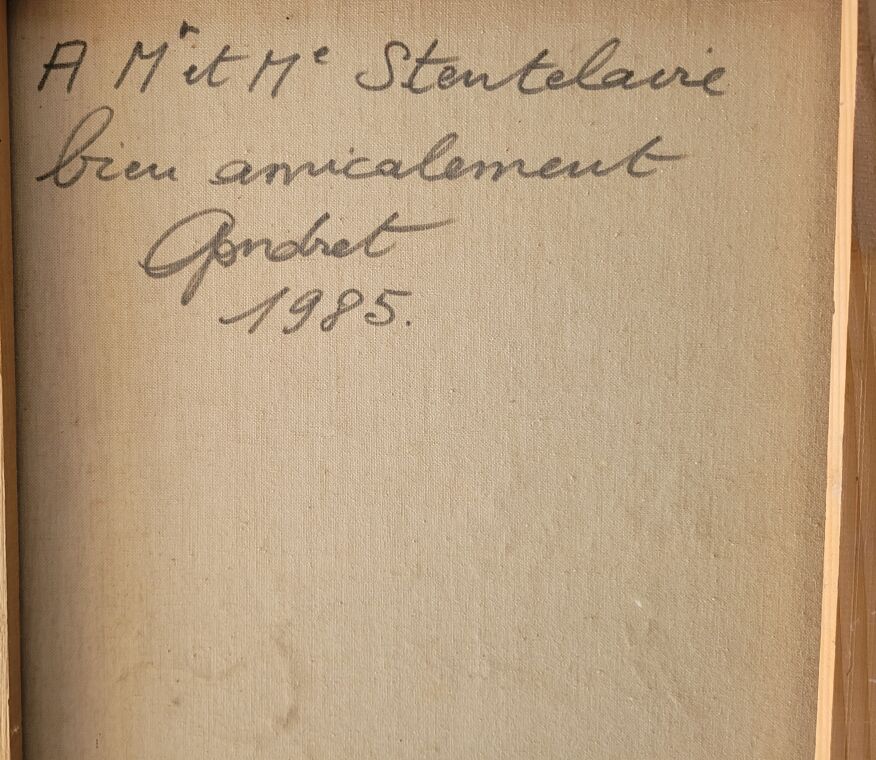 A Mr et Me Stentelaire
bien amicalement
Gondret
1985.